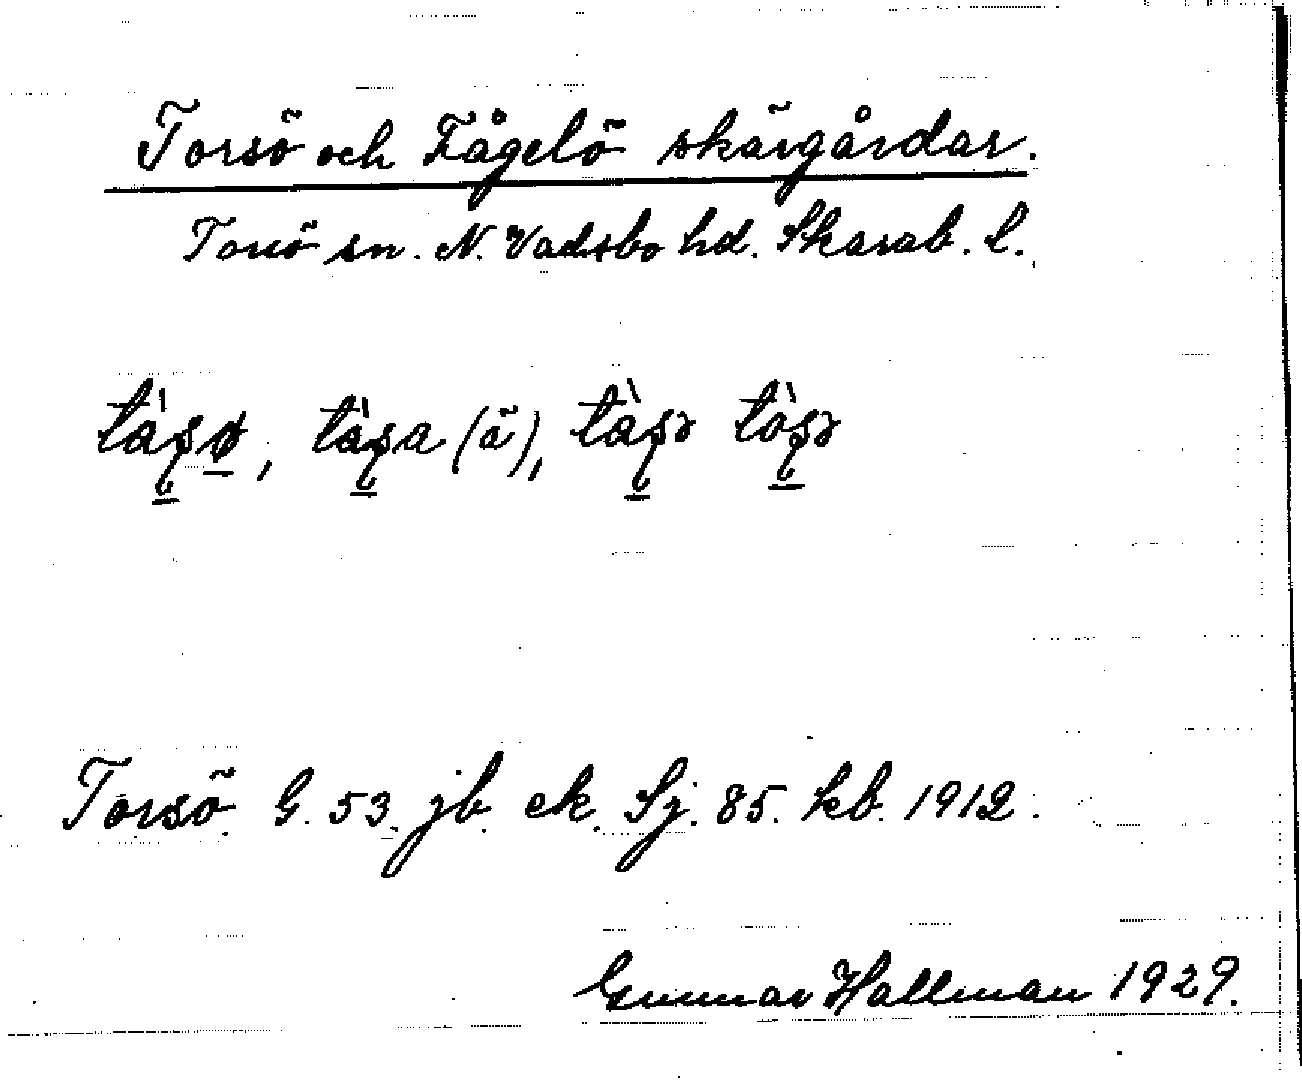 Torsö och Fågelö skärgårdar.
Torsö sn. N. Vadsbo hd. Skarab. l.
Torsö G. 53. jb. ek. Sj. 85. kb. 1912.
Gunnar Hallman 1929.